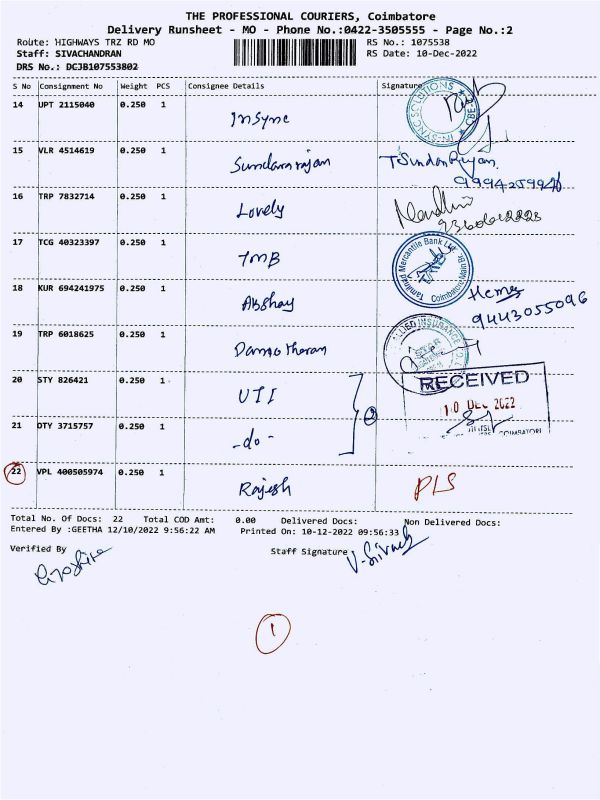 THE PROFESSIONAL COURIERS, Coimbatore
Delivery Runsheet - MO - Phone No.:0422-3505555 - Page No.:2
Route: HIGHWAYS TRZ RD MO RS No.: 1075538
Staff: SIVACHANDRAN RS Date: 10-Dec-2022
DRS No.: DCJB107553802
S No Consignment No Weight PCS Consignee Details Signature
14 UPT 2115040 0.250 1 Insync
IN-SYNC SOLUTIONS CBE
15 VLR 4514619 0.250 1 Sundararajan
16 TRP 7832714 0.250 1 Lovely
17 TCG 40323397 0.250 1 TMB
Tamilnad Mercantile Bank Ltd.
18 KUR 694241975 0.250 1 Akshay Hema
9443055096
19 TRP 6018625 0.250 1
ALLIED INSURANCE
STAR
20 STY 826421 0.250 1 UTI 2
RECEIVED
10 DEC 2022
21 OTY 3715757 0.250 1 -do-
22 VPL 400505974 0.250 1 Rajesh PLS
Total No. Of Docs: 22 Total COD Amt: 0.00 Delivered Docs: Non Delivered Docs:
Entered By :GEETHA 12/10/2022 9:56:22 AM Printed On: 10-12-2022 09:56:33
Verified By Staff Signature
1